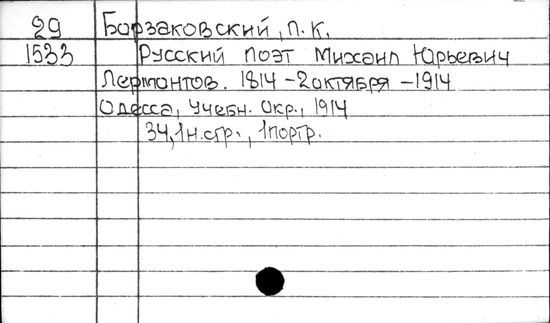 29 Борзаковский, П. К.
1533 Русский поэт Михаил Юрьевич
Лермонтов. 1814 - 2 октября - 1914
Одесса, Учебн. Окр., 1914
34, 1 н. стр., 1 портр.